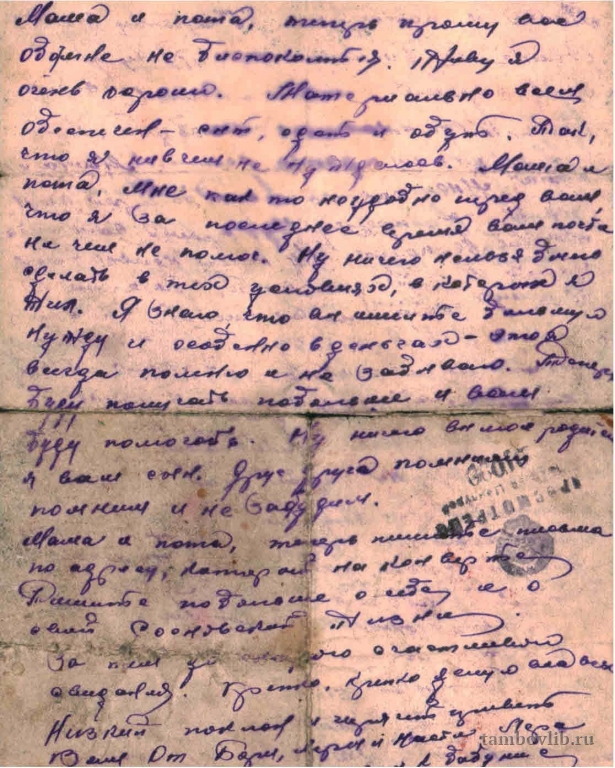 Мама и папа, теперь прошу вас
обо мне не беспокоиться. Живу я
очень хорошо. Материально всем
обеспечен – сыт, одет и обут. Так,
что я ни в чем не нуждаюсь. Мама и
папа, мне как то неудобно перед вами
что я за последнее время вам почти
ни чем не помог. Ну ничего нельзя было
сделать в тех условиях, в которых я
жил. Я знаю, что вы имеете большую
нужду и особенно в деньгах – это я
всегда помню и не забываю. Теперь
буду получать побольше и вам
буду помогать. Ну ничего вы мои родители
я ваш сын. Друг друга помнили
помним и не забудим.
Мама и папа, теперь пишите письма
по адресу, который на конверте
Пишите побольше о себе и о
своей Сосновской жизни.
За тем до счастливого
свидания. Крепко, крепко целую вас всех
Низкий поклон и горячий привет
Вам от Бори, и Насти Лера
ПРОСМОТРЕНО
tambovlib.ru